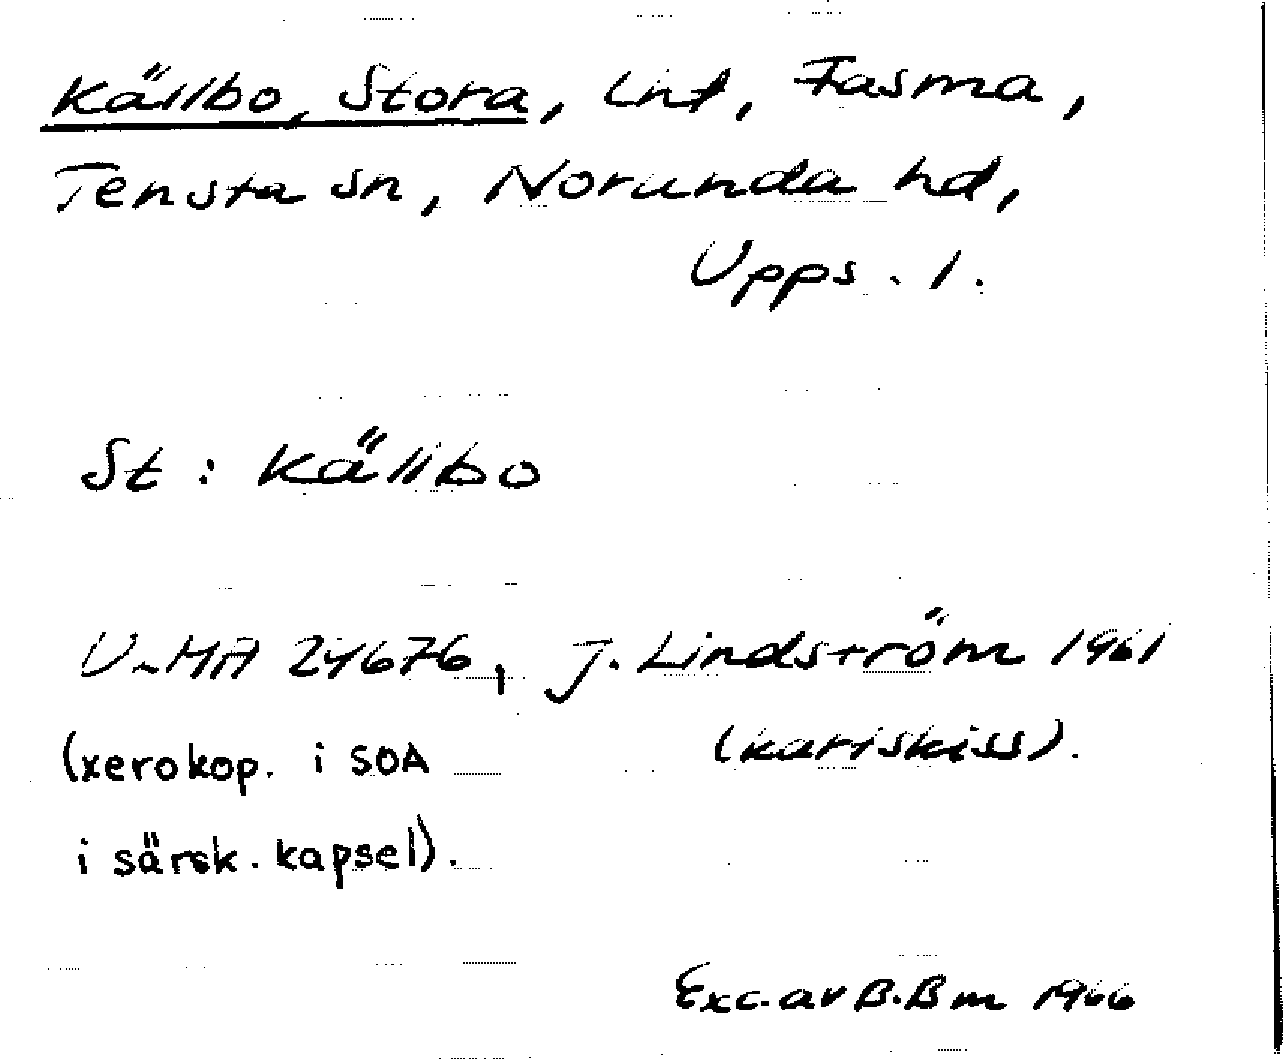 Källbo, Stora, lht, Fasma,
Tensta sn, Norunda hd,
Upps. l.
St : Källbo
ULMA 24676, J. Lindström 1961
(xerokop. i SOA (kartskiss).
i särsk. kapsel).
Exc. av B. Bm 1966